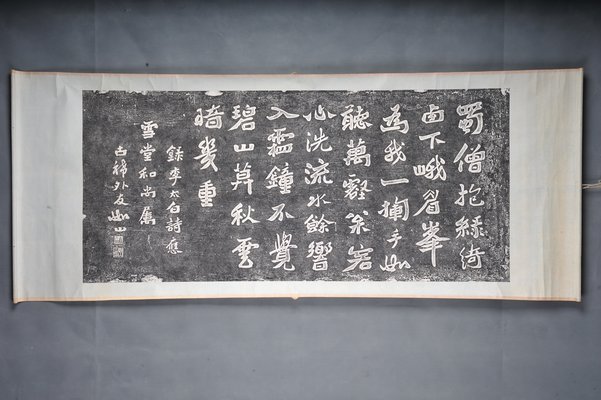 蜀僧抱綠綺
西下峨眉峯
為我一揮手如
聽萬壑松客
心洗流水餘響
入霜鐘不覺
碧山莫秋雲
暗幾重
錄李太白詩應
雪堂和尚屬
古稀外友如山